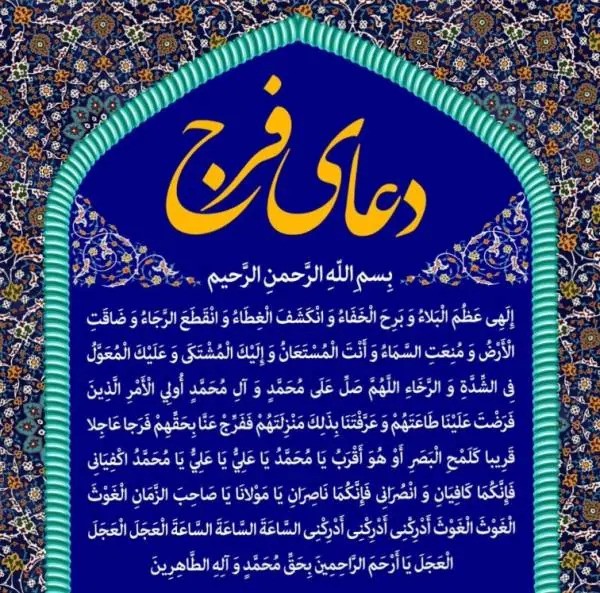 دعای فرج
بِسمِ اللّهِ الرَّحمنِ الرَّحیم
إِلَهِی عَظُمَ الْبَلاءُ وَ بَرِحَ الْخَفَاءُ وَ انْكَشَفَ الْغِطَاءُ وَ انْقَطَعَ الرَّجَاءُ وَ ضَاقَتِ
الْأَرْضُ وَ مُنِعَتِ السَّمَاءُ وَ أَنْتَ الْمُسْتَعَانُ وَ إِلَيْكَ الْمُشْتَكَى وَ عَلَيْكَ الْمُعَوَّلُ
فِی الشِّدَّةِ وَ الرَّخَاءِ اللَّهُمَّ صَلِّ عَلَى مُحَمَّدٍ وَ آلِ مُحَمَّدٍ أُولِي الْأَمْرِ الَّذِينَ
فَرَضْتَ عَلَيْنَا طَاعَتَهُمْ وَ عَرَّفْتَنَا بِذَلِكَ مَنْزِلَتَهُمْ فَفَرِّجْ عَنَّا بِحَقِّهِمْ فَرَجا عَاجِلا
قَرِیبا كَلَمْحِ الْبَصَرِ أَوْ هُوَ أَقْرَبُ یَا مُحَمَّدُ یَا عَلِيُّ یَا عَلِيُّ یَا مُحَمَّدُ اكْفِيَانِی
فَإِنَّكُمَا كَافِيَانِ وَ انْصُرَانِی فَإِنَّكُمَا نَاصِرَانِ یَا مَوْلانَا یَا صَاحِبَ الزَّمَانِ الْغَوْثَ
الْغَوْثَ الْغَوْثَ أَدْرِكْنِی أَدْرِكْنِی أَدْرِكْنِی السَّاعَةَ السَّاعَةَ السَّاعَةَ الْعَجَلَ الْعَجَلَ
الْعَجَلَ یَا أَرْحَمَ الرَّاحِمِینَ بِحَقِّ مُحَمَّدٍ وَ آلِهِ الطَّاهِرِینَ